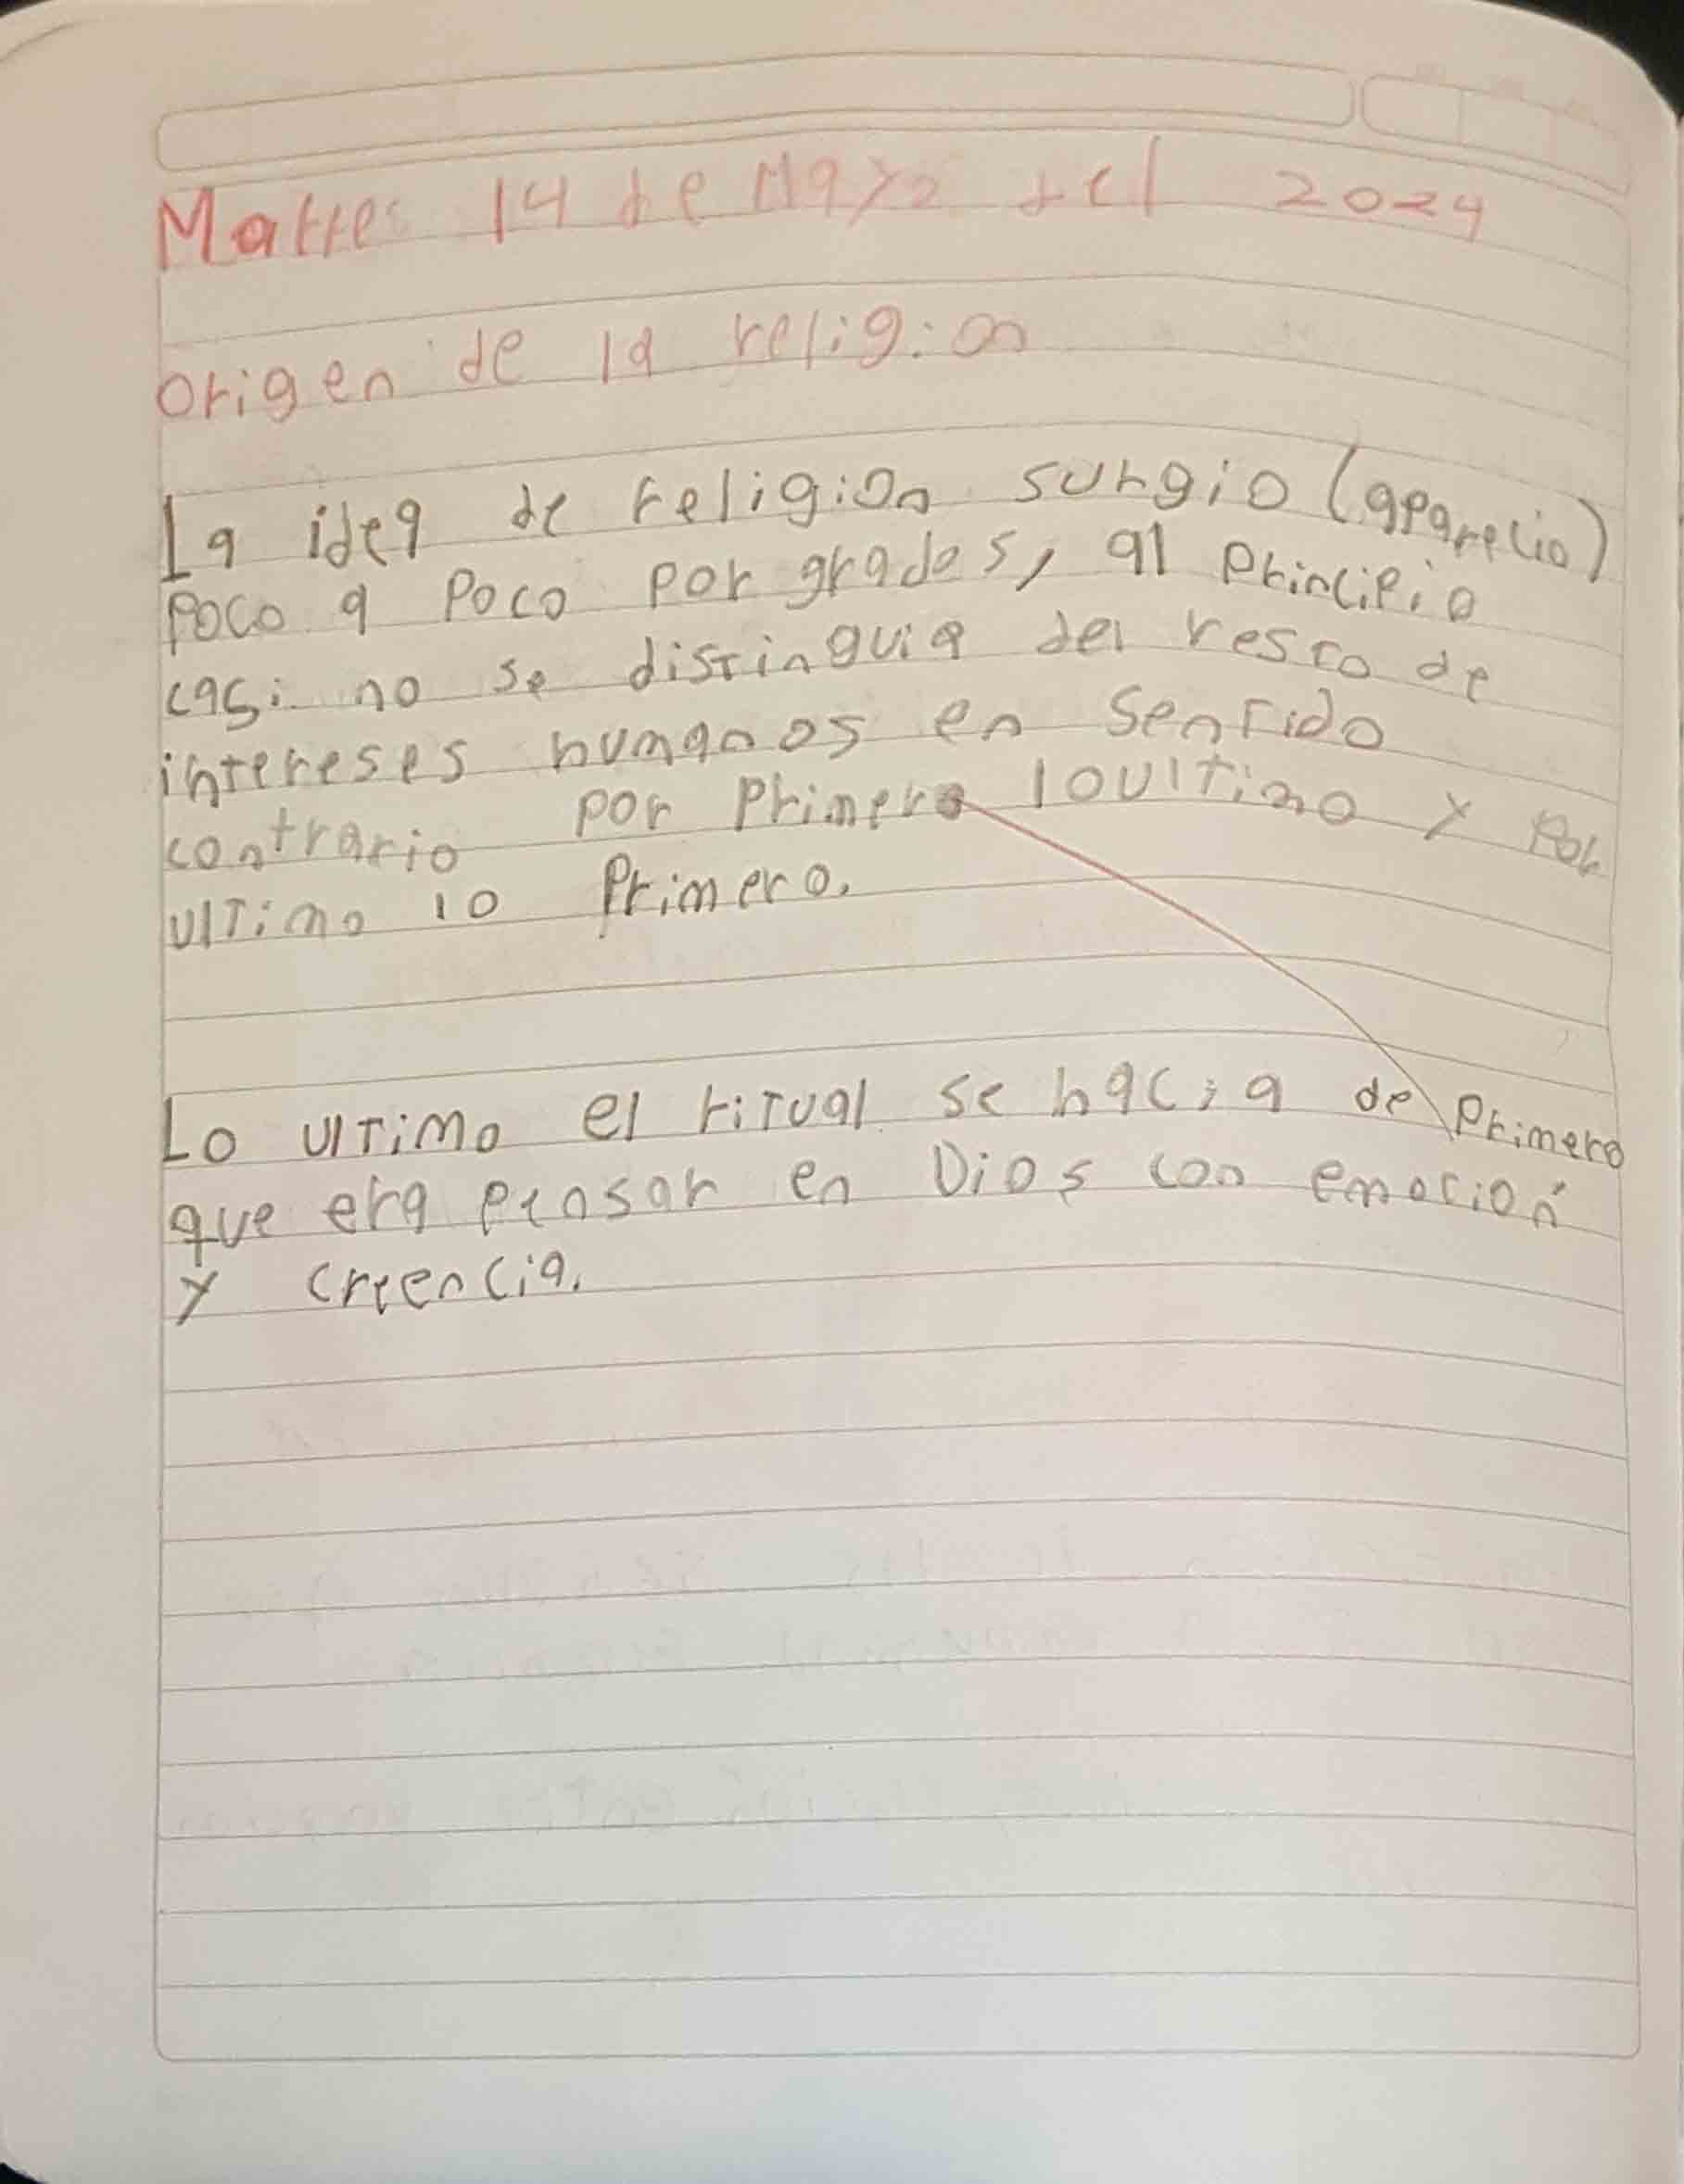 Martes 14 de Mayo del 2024
Origen de la religion
La idea de religion surgio (aparecio)
poco a poco por grados, al principio
casi no se distinguia del resto de
intereses humanos en sentido
contrario por primero lo ultimo y por
ultimo lo primero.
Lo ultimo el ritual se hacia de primero
que era pensar en Dios con emoción
y creencia.